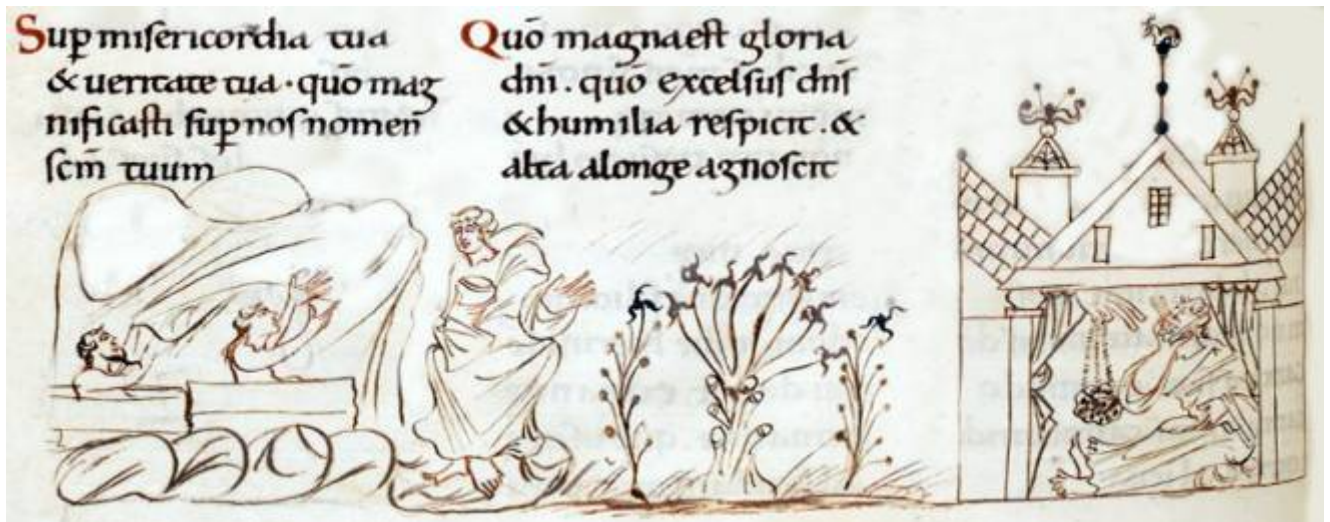 Sup misericordia tua
& ueritate tua · quō mag
nificasti sup nos nomen
scm̄ tuum
Quō magna est gloria
dn̄i . quō excelsus dn̄s
& humilia respicit . &
alta alonge agnoscit